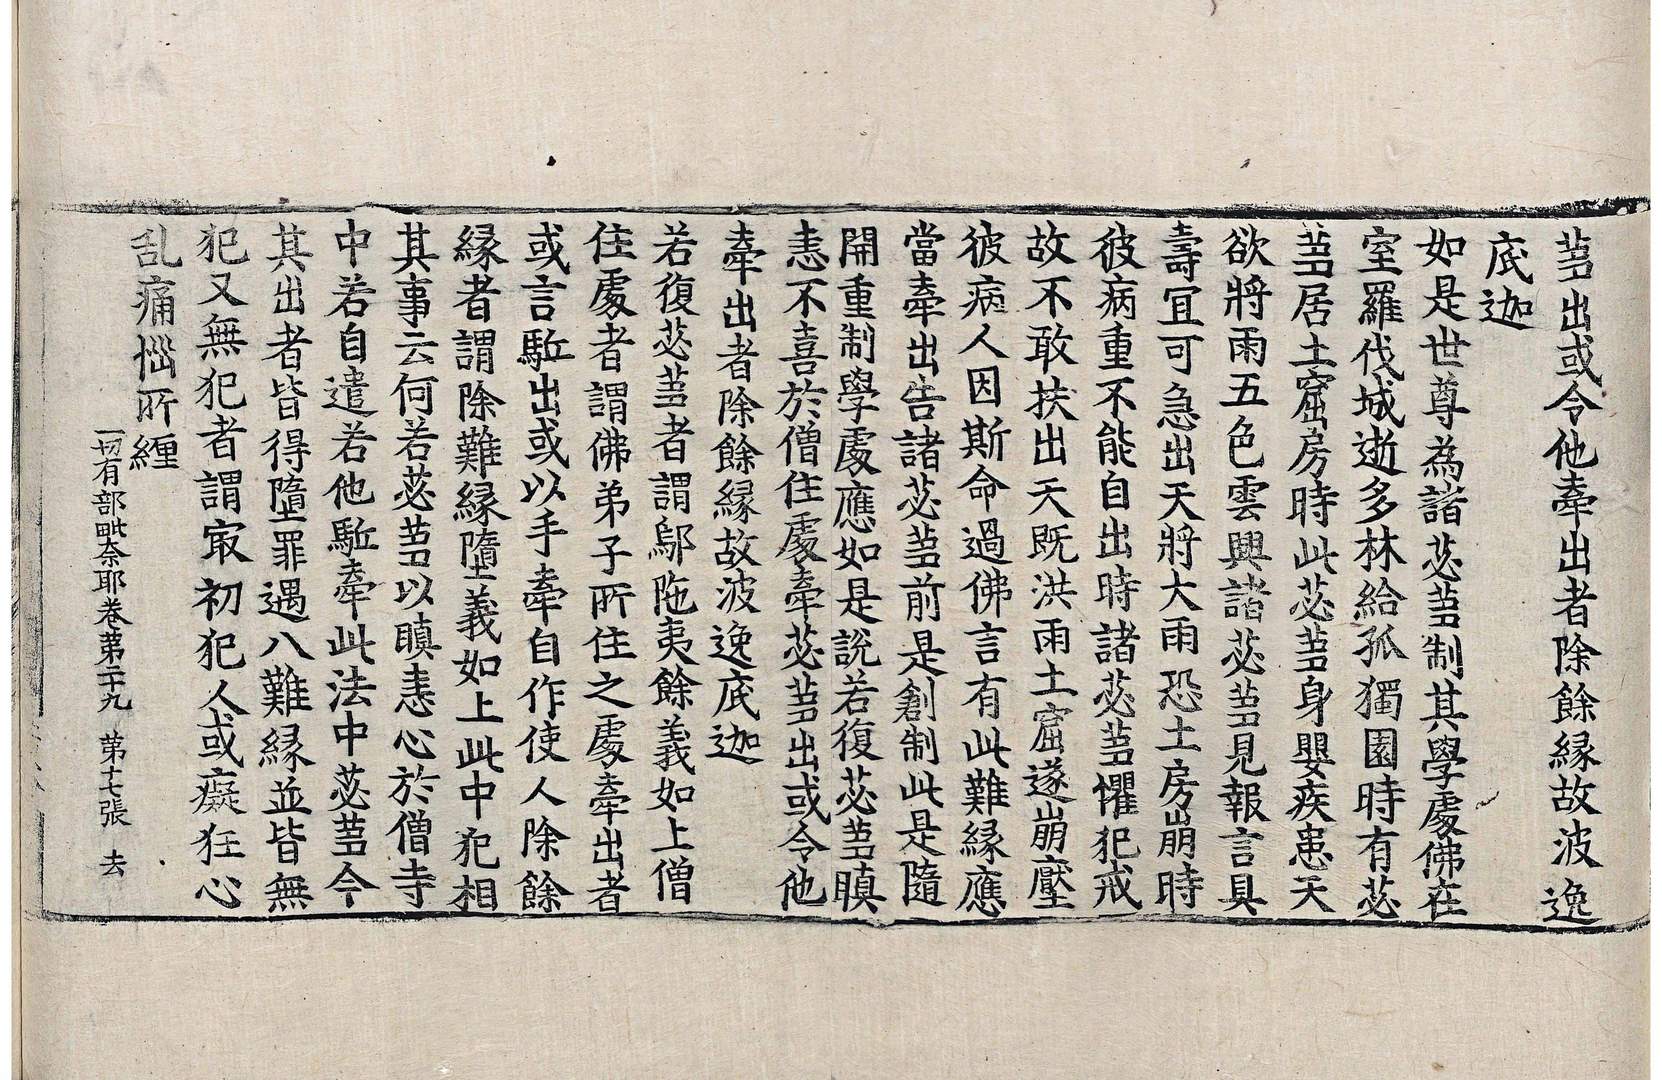 蒭出或令他牽出者除餘縁故波逸
底迦
如是世尊為諸苾蒭制其學處佛在
室羅伐城逝多林給孤獨園時有苾
蒭居土窟房時此苾蒭身嬰疾患天
欲將雨五色雲興諸苾蒭見報言具
壽冝可急出天將大雨恐土房崩時
彼病重不能自出時諸苾蒭懼犯戒
故不敢扶出天既洪雨土窟遂崩壓
彼病人因斯命過佛言有此難縁應
當牽出告諸苾蒭前是創制此是隨
開重制學處應如是說若復苾蒭瞋
恚不喜於僧住處牽苾蒭出或令他
牽出者除餘縁故波逸底迦
若復苾蒭者謂鄔陁夷餘義如上僧
住處者謂佛弟子所住之處牽出者
或言駈出或以手牽自作使人除餘
縁者謂除難縁墮義如上此中犯相
其事云何若苾蒭以瞋恚心於僧寺
中若自遣若他駈牽此法中苾蒭令
其出者皆得墮罪遇八難縁並皆無
犯又無犯者謂㝡初犯人或癡狂心
乱痛惱所纏
一切有部毗奈耶卷第二十九 第十七張 去